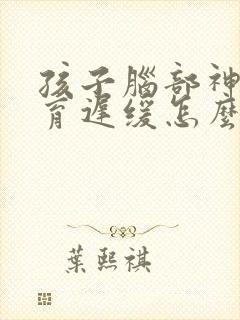 孩子腦部神
育遲缓怎麼
葉熙祺